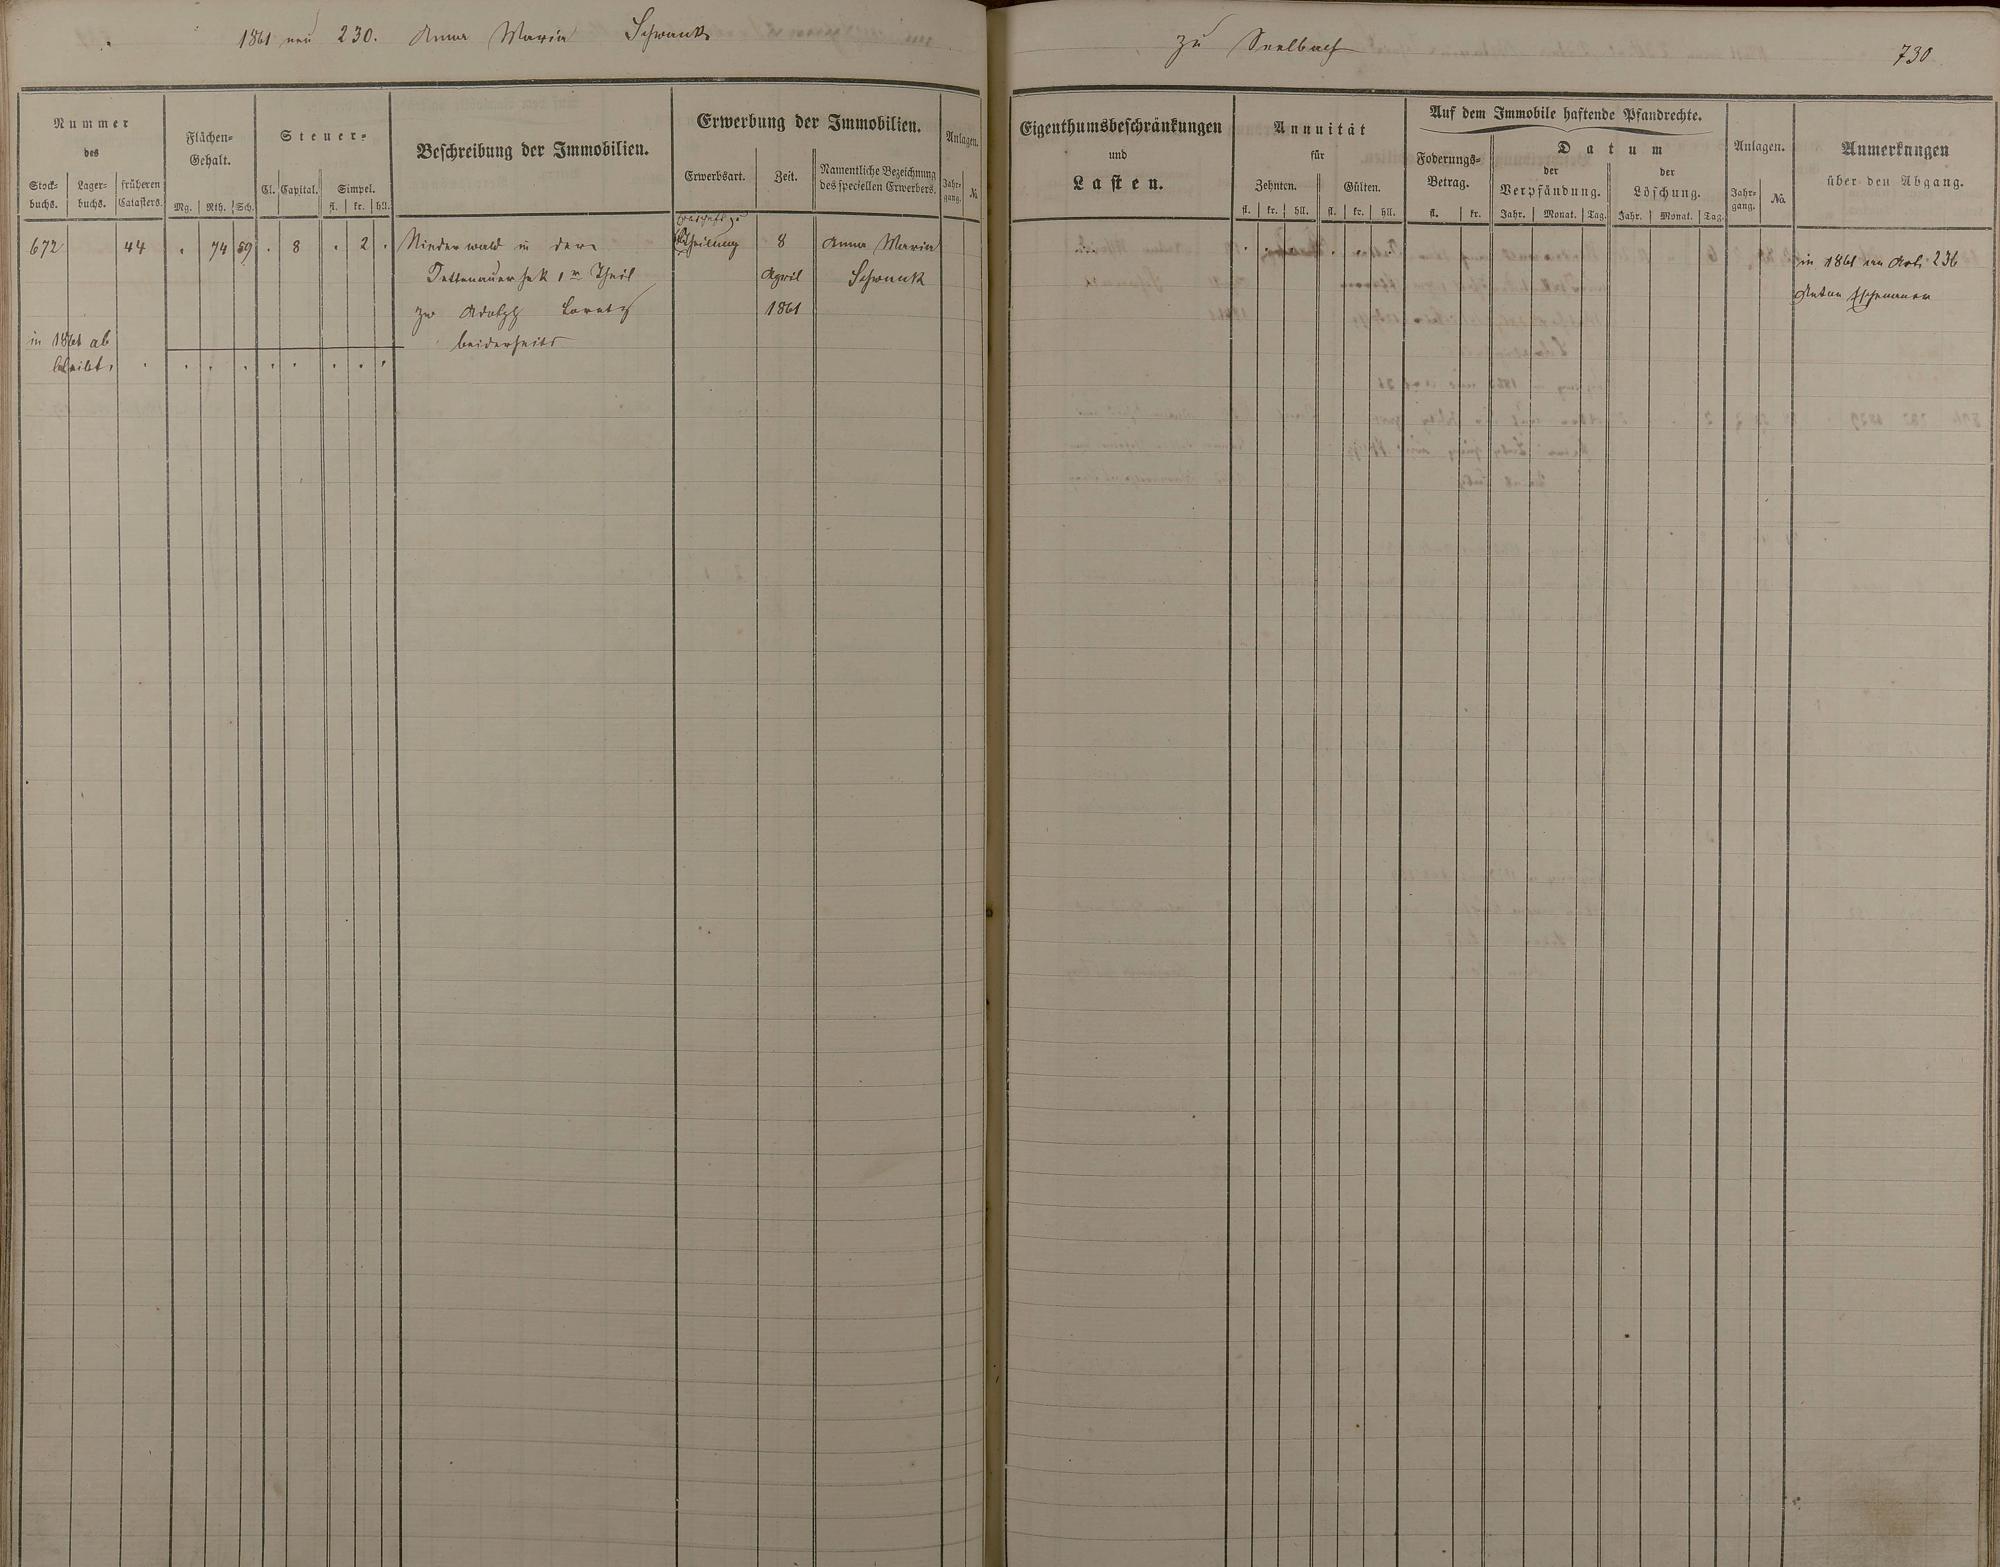 1861 neu 230. Anna Maria Schwank
zu Seelbach
730
Nummer
des
Stock-
buchs.
Lager-
buchs.
früheren
Catasters.
Flächen-
Gehalt.
Mg. Rth. Sch.
Steuer-
Cl. Capital. Simpel.
fl. kr. hll.
Beschreibung der Immobilien.
Erwerbung der Immobilien.
Erwerbsart. Zeit.
Namentliche Bezeichnung
des speciellen Erwerbers.
Anlagen.
Jahr-
gang.
No.
Eigenthumsbeschränkungen
und
Lasten.
Annuität
für
Zehnten. Gülten.
fl. kr. hll. fl. kr. hll.
Auf dem Immobile haftende Pfandrechte.
Foderungs-
Betrag.
fl. kr.
Datum
der
Verpfändung.
Jahr. Monat. Tag.
der
Löschung.
Jahr. Monat. Tag.
Anlagen.
Jahr-
gang.
No.
Anmerkungen
über den Abgang.
672 44 . 74 59 . 8 . 2 . Niederwald in der
theilung 8 Anna Maria
1r Theil
April Schwank
zw Adolph
1861
beiderseits
in 1861 ab
bleibt . . . . . . . . .
in 1861 an Art. 236
Anton